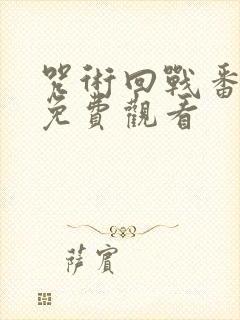 咒術回戰番
免費觀看
薩賓